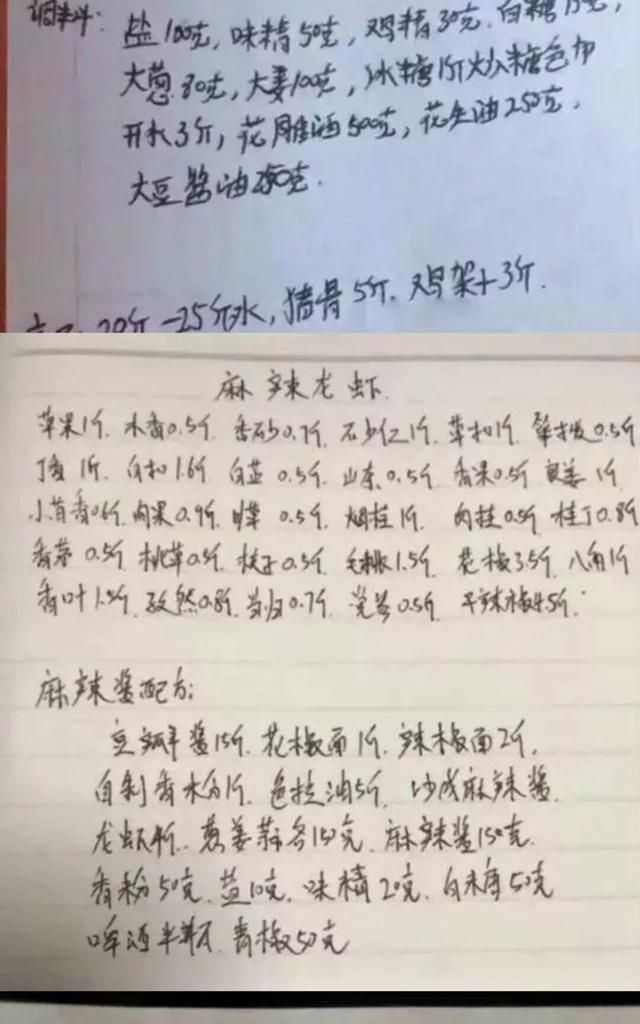 调料: 盐100克, 味精50克, 鸡精30克, 白糖15克,
大葱80克, 大姜100克, 冰糖1斤炒糖色加
开水3斤, 花雕酒500克, 花生油250克,
大豆酱油250克.
20斤-25斤水, 猪骨5斤. 鸡架+3斤.
麻辣龙虾
苹果1斤. 木香0.5斤. 香砂0.7斤. 石沙仁1斤. 草扣1斤. 毕拨0.5斤
丁香1斤. 白扣1.6斤 白芷0.5斤. 山奈0.5斤. 香果0.5斤 良姜1斤
小茴香0.6斤. 肉果0.9斤. 甘草0.5斤. 烟桂1斤 肉桂0.5斤. 桂丁0.8斤
香茅0.5斤. 枝子0.5斤. 毛桃1.5斤. 花椒3.5斤. 八角1斤
香叶1.5斤. 孜然0.8斤. 当归0.7斤. 0.5斤. 干辣椒4.5斤.
麻辣酱配方;
豆瓣酱15斤. 花椒面1斤. 辣椒面2斤.
自制香料粉1斤. 色拉油5斤. 炒成麻辣酱.
龙虾4斤. 葱姜蒜各150克. 麻辣酱150克.
香粉50克. 盐10克. 味精20克. 白糖50克
啤酒半瓶. 青椒50克